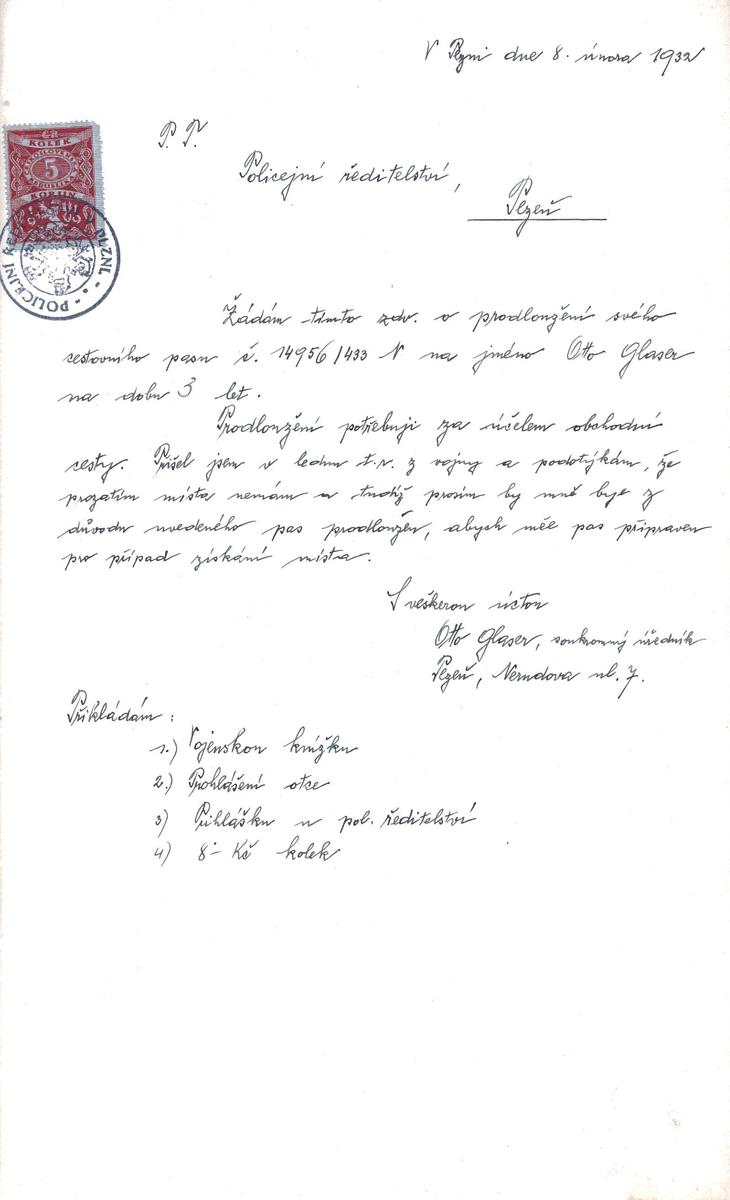 V Plzni dne 8. února 1932
P. T.
Policejní ředitelství,
Plzeň
ČR
KOLEK
ČESKOSLOVENSKÁ
5
REPUBLIKA
KORUN
POLICEJNÍ ŘED PLZNI.
Žádám tímto zdv. o prodloužení svého
cestovního pasu č. 14956/433 N na jméno Otto Glaser
na dobu 3 let.
Prodloužení potřebuji za účelem obchodní
cesty. Přišel jsem v lednu t.r. z vojny a podotýkám, že
prozatím místa nemám a tudíž prosím by mně byl z
důvodu uvedeného pas prodloužen, abych měl pas připraven
pro případ získání místa.
S veškerou úctou
Otto Glaser, soukromný úředník
Plzeň, Nerudova ul. 7.
Přikládám:
1.) Vojenskou knížku
2.) Prohlášení otce
3) Přihlášku u pol. ředitelství
4) 8·– Kč kolek